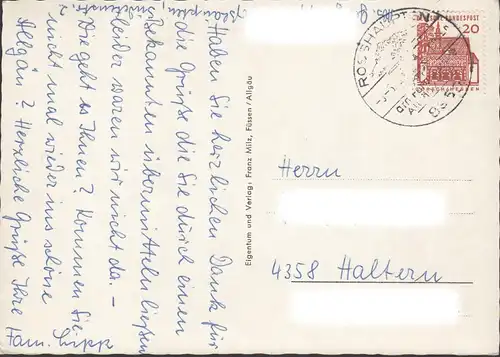 Haben Sie herzlichen Dank für
die Grüße die Sie durch einen
Bekannten übermitteln ließen
leider waren wir nicht da. –
Wie geht es Ihnen? Kommen Sie
nicht mal wieder ins schöne
Allgäu? Herzliche Grüße Ihre
Fam.
Eigentum und Verlag: Franz Milz, Füssen/Allgäu
ROSSHAUPTEN
895
BUNDESPOST
20
Herrn
4358 Haltern